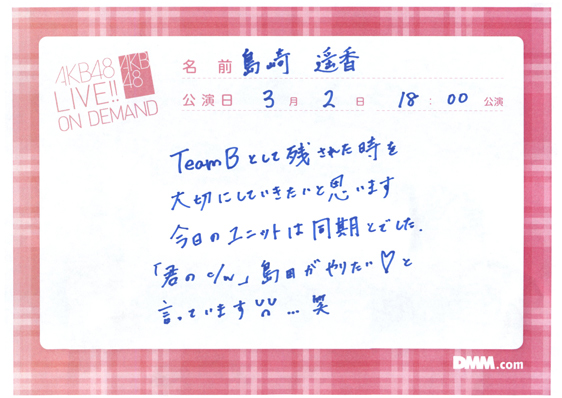 AKB48
LIVE!!
ON DEMAND
AKB
48
名前 島崎 遥香
公演日 3月2日 18:00公演
TeamBとして残された時を
大切にしていきたいと思います
今日のユニットは同期とでした.
「君のc/w」島田がやりたい♡と
言っています ... 笑
DMM.com